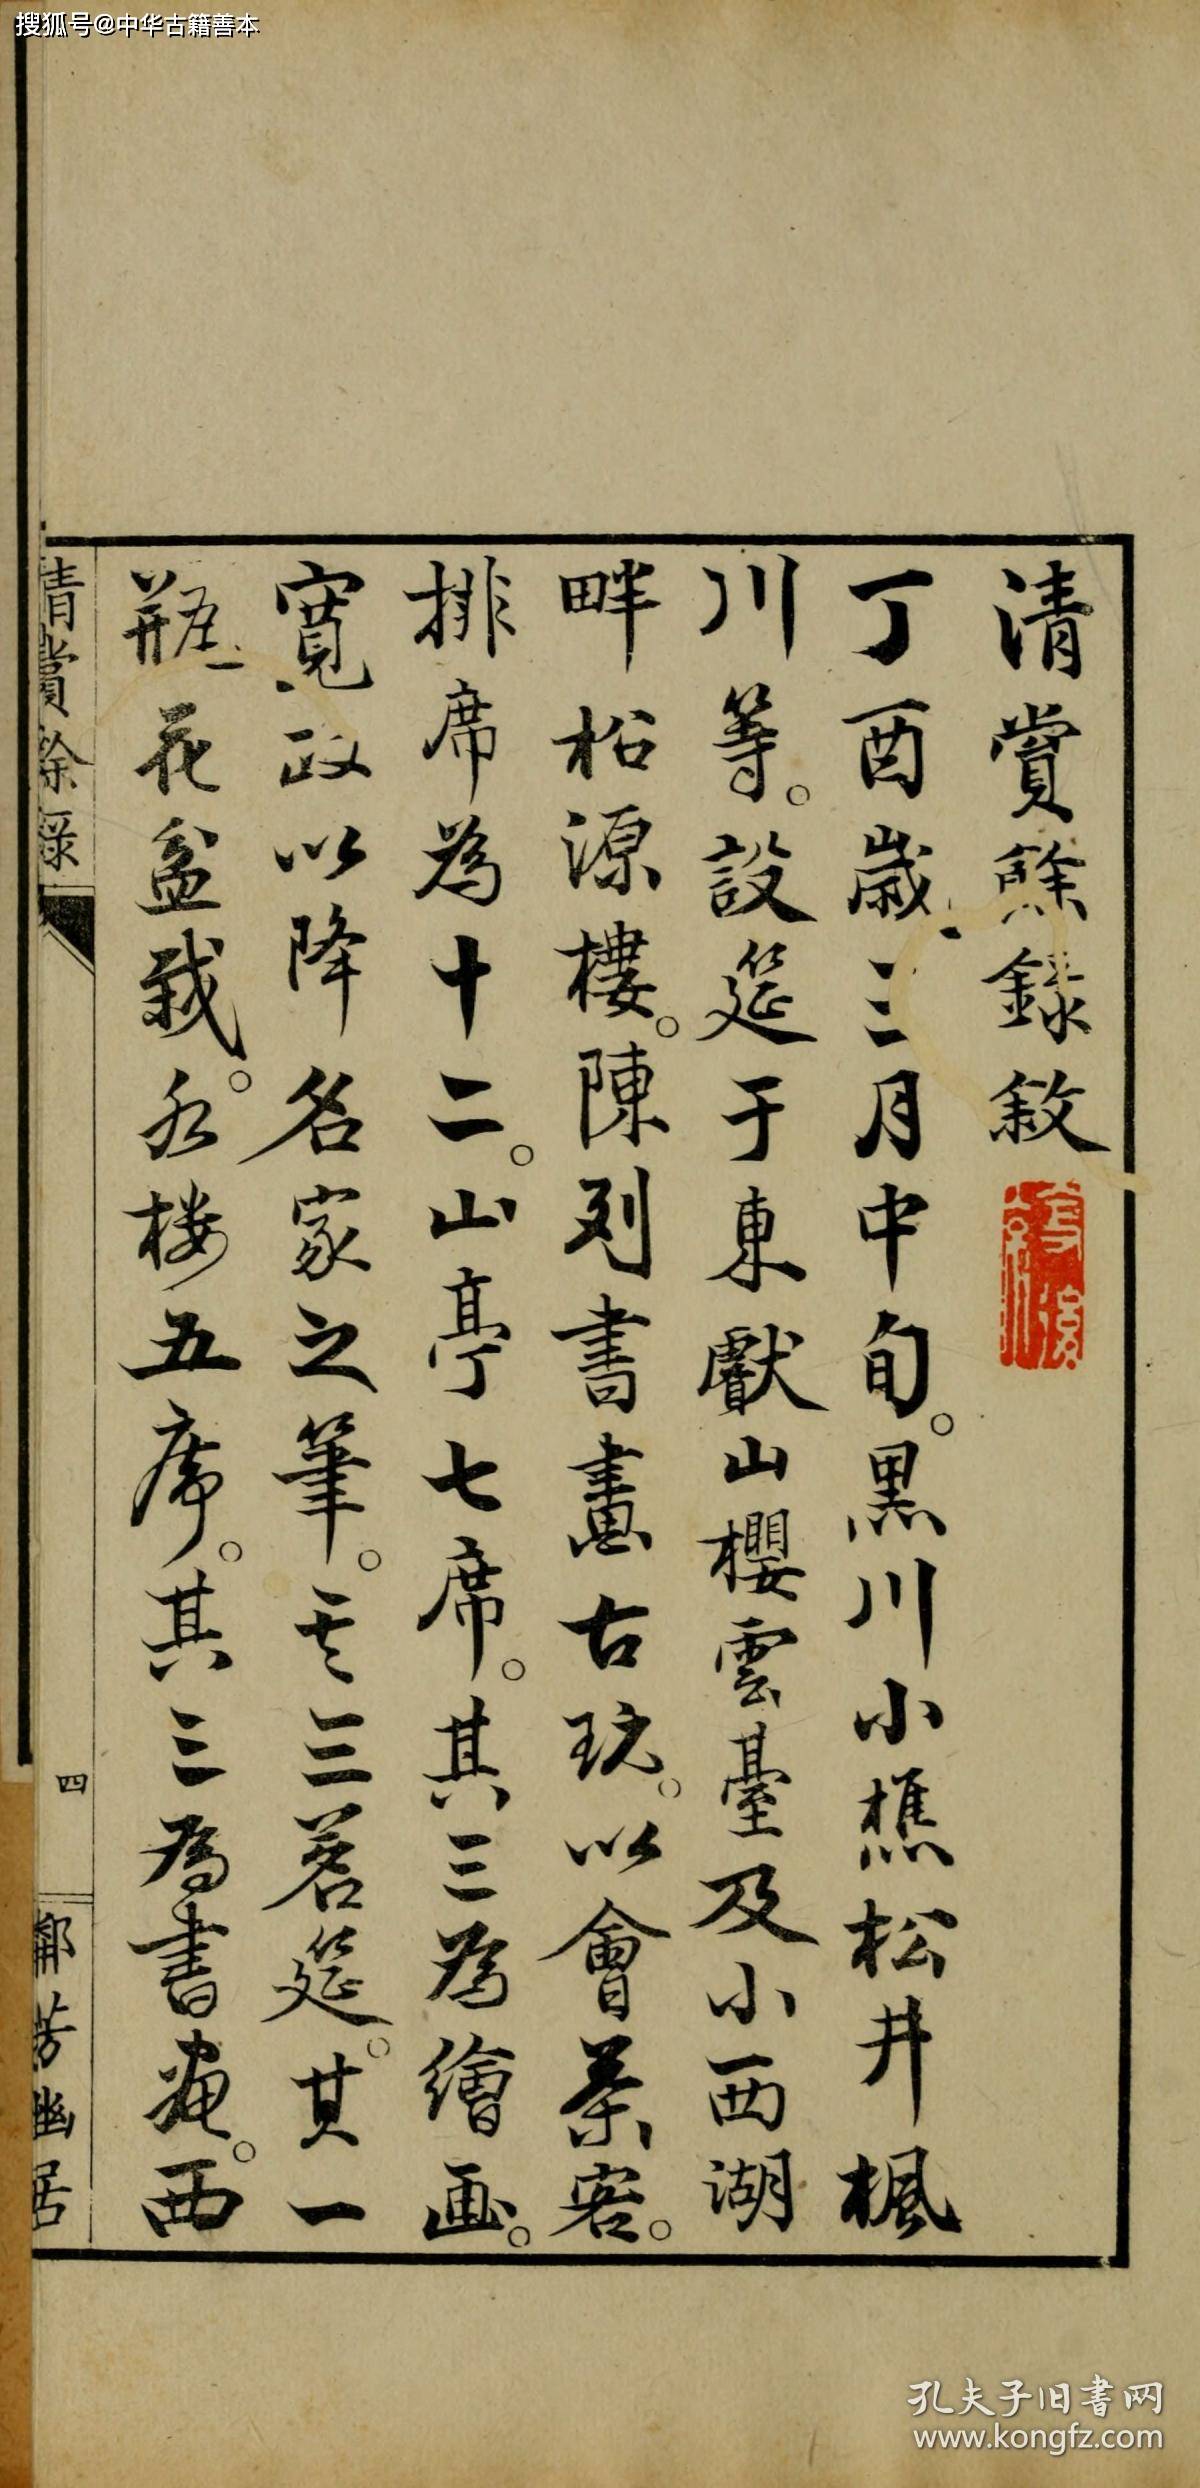 搜狐号@中华古籍善本
清賞餘錄敘
丁酉歲三月中旬。黒川小樵松井楓
川等。設筵于東獻山櫻雲臺及小西湖
畔松源樓。陳列書畫古玩。以會茶客。
排席為十二。山亭七席。其三為繪画。
寬政以降名家之筆。其三茗筵。其一
瓶花盆栽。水楼五席。其三為書畫。西
清賞餘錄
四
鄰芳幽居
孔夫子旧书网
www.kongfz.com